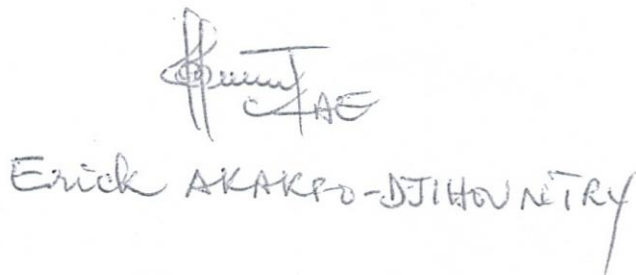 AE
Erick AKAKPO-DJIHOUNTRY